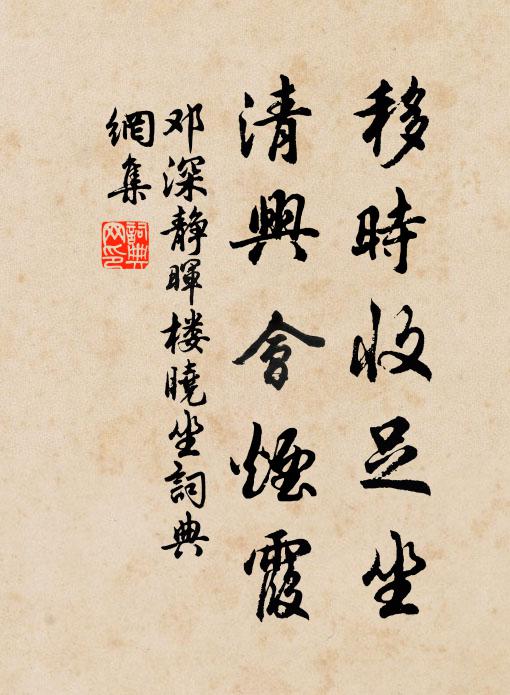 移時收足坐
清興會煙霞
邓深静暉楼曉坐詞典
網集
詞典
网印